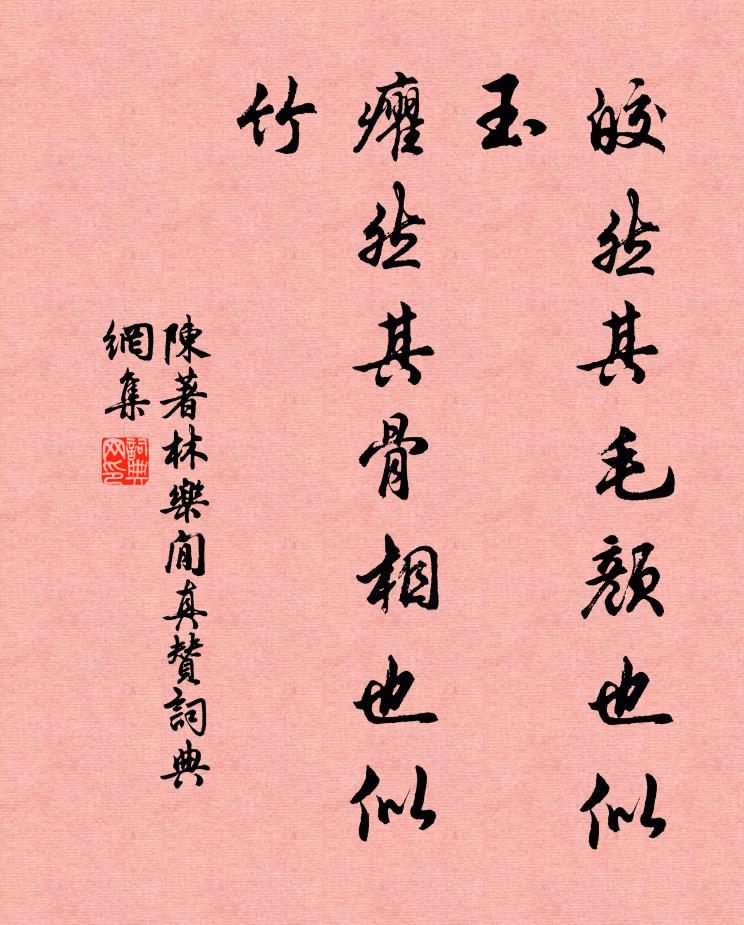 皎然其毛顏也似
玉
癯然其骨相也似
竹
陳著林樂閒真贊詞典
網集
詞典
网印